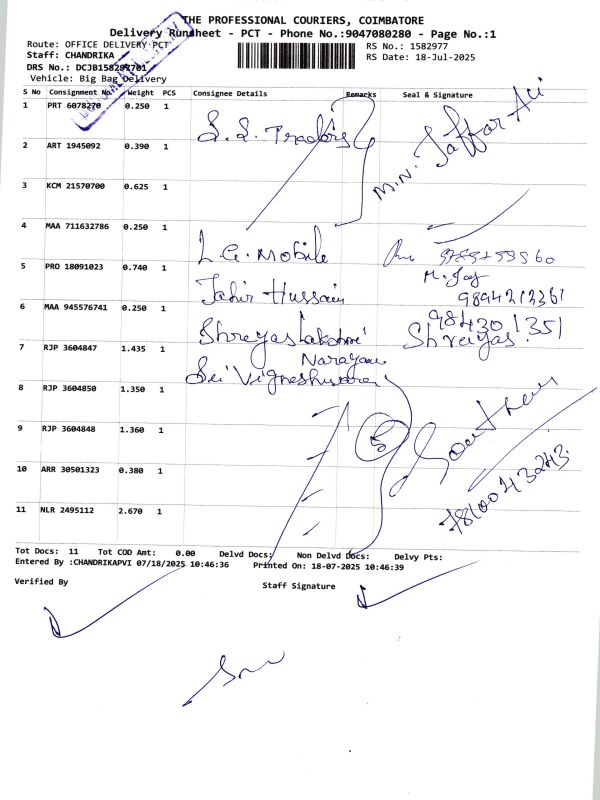 THE PROFESSIONAL COURIERS, COIMBATORE
Delivery Runsheet - PCT - Phone No.:9047080280 - Page No.:1
Route: OFFICE DELIVERY PCT
RS No.: 1582977
Staff: CHANDRIKA
RS Date: 18-Jul-2025
DRS No.:
Vehicle: Big Bag Delivery
S No Consignment No. Weight PCS Consignee Details Remarks Seal & Signature
1 PRT 6078270 0.250 1 S.S. Traders M.N. Jaffar Ali
2 ART 1945092 0.390 1
3 KCM 21570700 0.625 1
4 MAA 711632786 0.250 1 L.G. Mobile
5 PRO 18091023 0.740 1 Tahir Hussain 9894213361
6 MAA 945576741 0.250 1 Shreyas Lakshmi Narayan 984301351 Shreyas.
7 RJP 3604847 1.435 1 Sri Vigneshwara
8 RJP 3604850 1.350 1
9 RJP 3604848 1.360 1 5
10 ARR 30501323 0.380 1
11 NLR 2495112 2.670 1
Tot Docs: 11 Tot COD Amt: 0.00 Delvd Docs: Non Delvd Docs: Delvy Pts:
Entered By :CHANDRIKAPVI 07/18/2025 10:46:36 Printed On: 18-07-2025 10:46:39
Verified By
Staff Signature